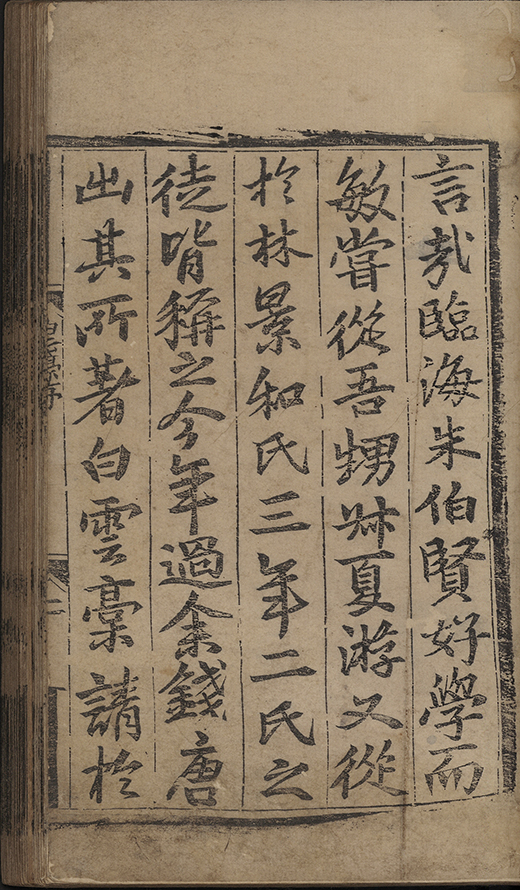 言哉臨海朱伯賢好學而
敏嘗從吾甥叔夏游又從
於林景和氏三年二氏之
徒皆稱之今年過余錢唐
出其所著白雲稾請於